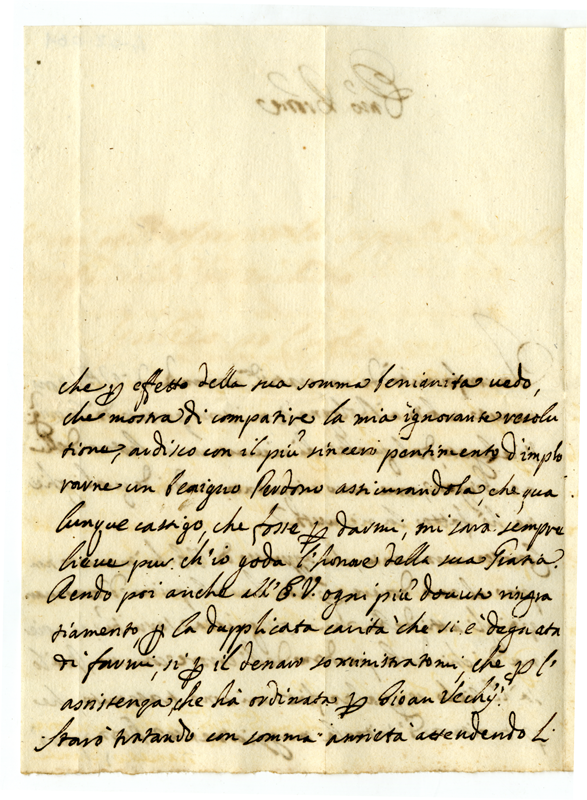 che p effetto della sua somma benignita vedo,
che mostra di compatire la mia ignorante resolu
tione, ardisco con il più sincero pentimento d'implo
rarne un benigno Perdono assicurandola, che qua
lunque castigo, che fosse p darmi, mi sarà sempre
lieve pur ch'io goda l'honore della sua Gratia.
Rendo poi anche all'E.V. ogni più dovuto ringra
tiamento, p la dupplicata carità che si è degnata
di farmi, sì p il denaro somministratomi, che p l'
assistenza, che hà ordinata p Gioan Vechij.
Starò tratando con somma ansietà attendendo l